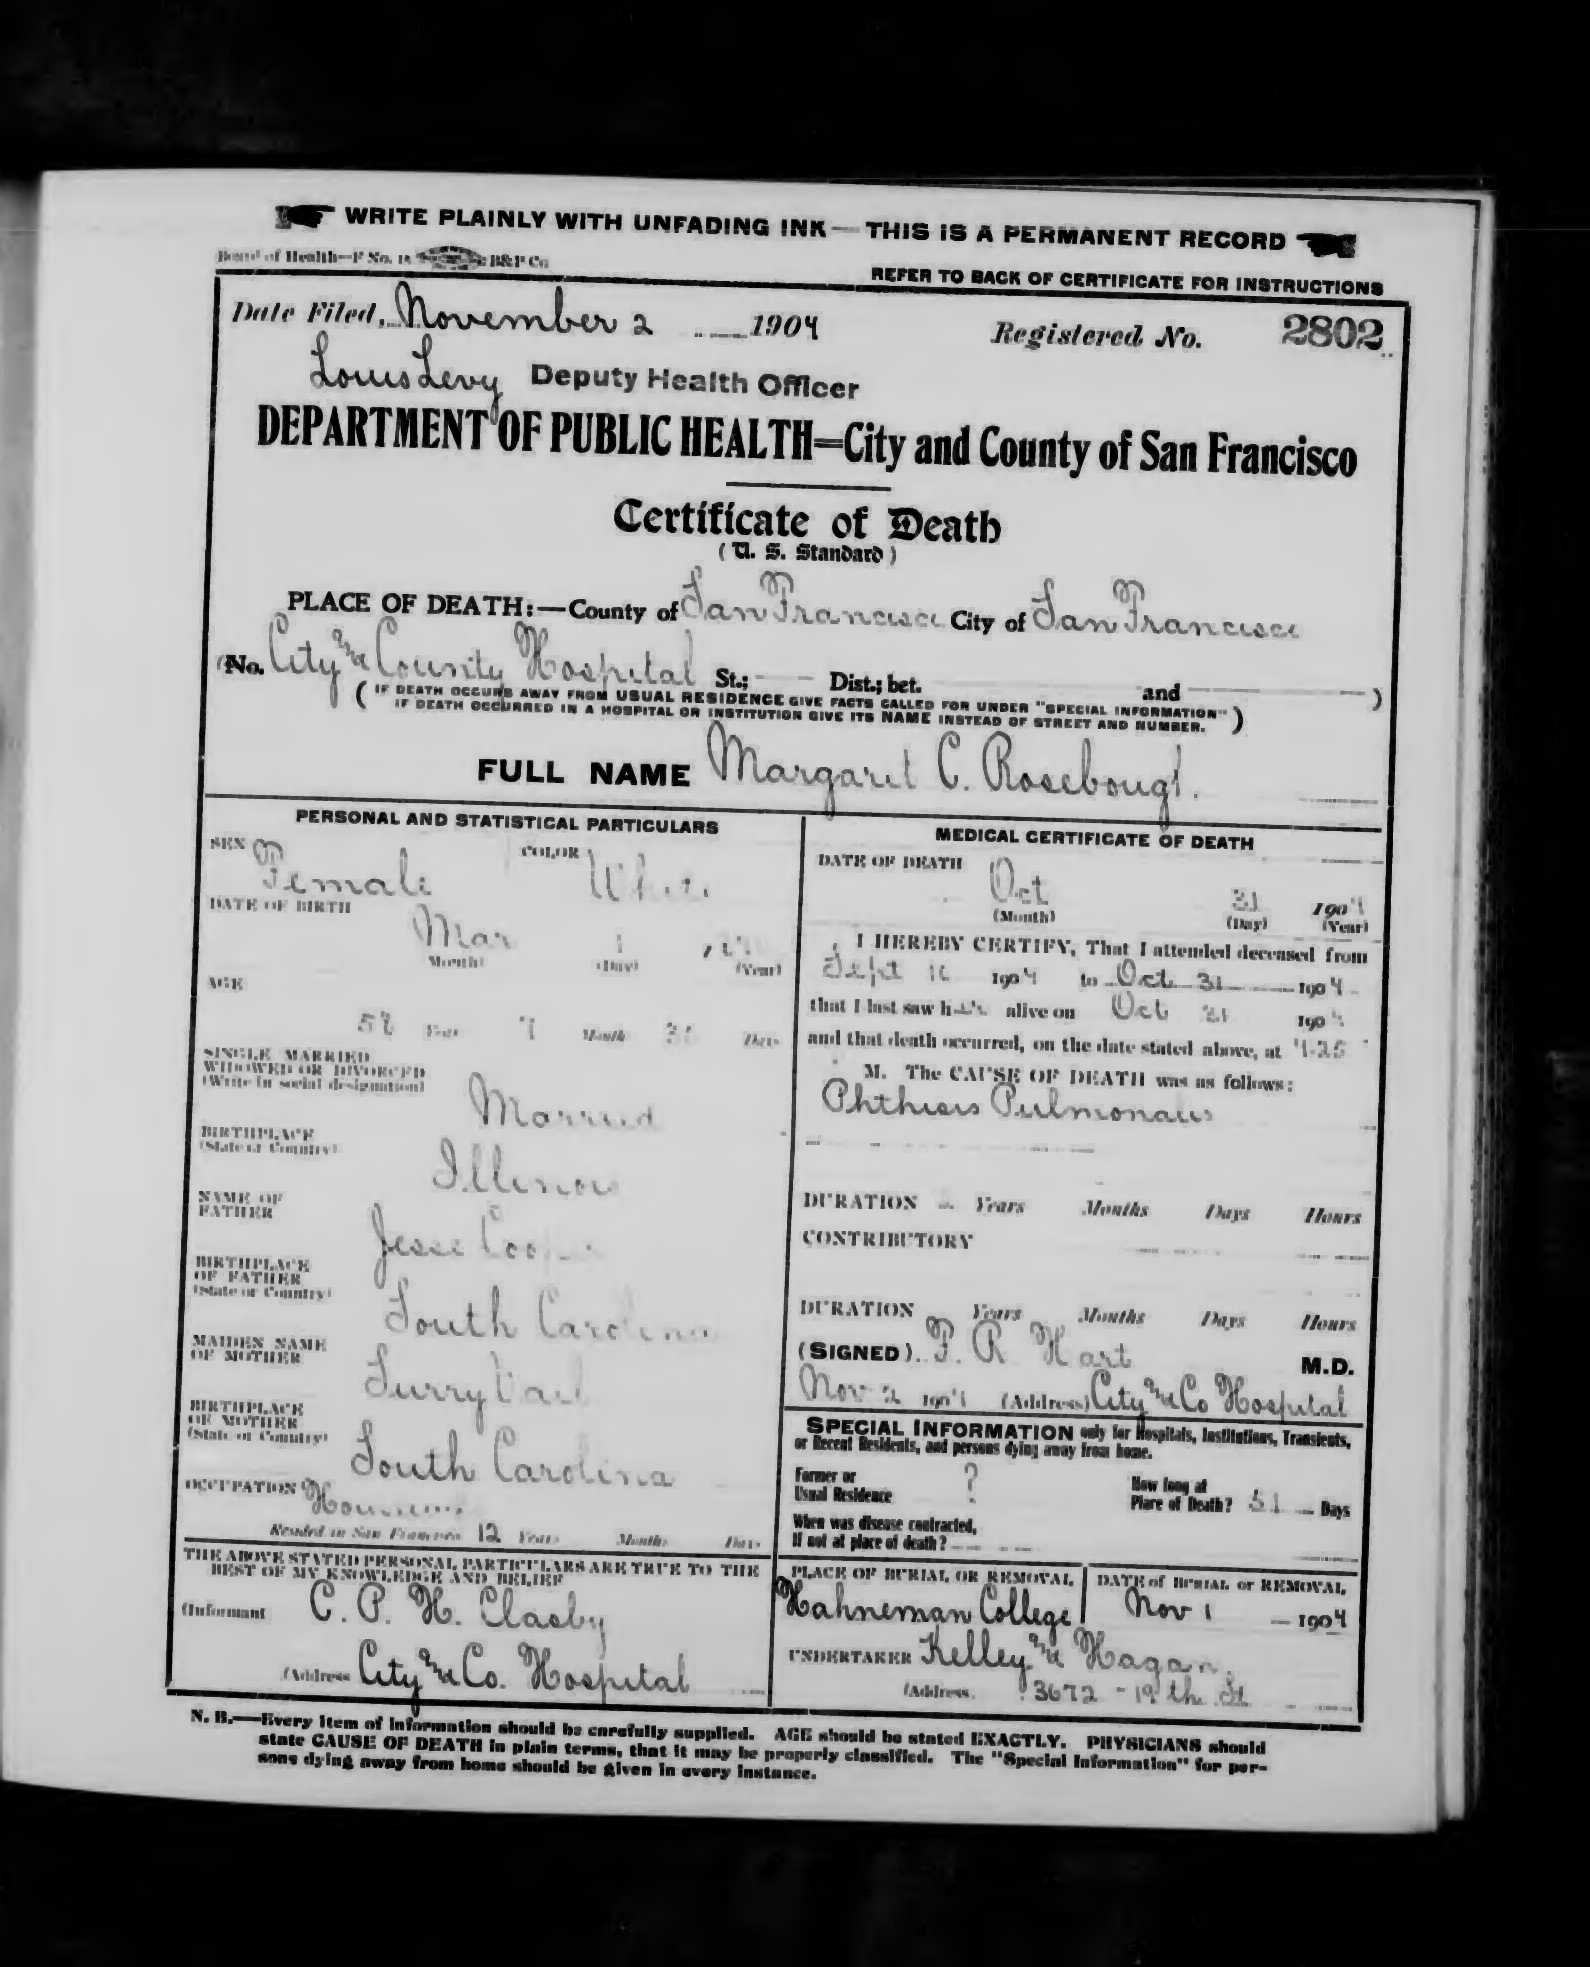 WRITE PLAINLY WITH UNFADING INK — THIS IS A PERMANENT RECORD
Board of Health—F No. 15 B&P Co
REFER TO BACK OF CERTIFICATE FOR INSTRUCTIONS
Date Filed, November 2 1904 Registered No. 2802
Louis Levy Deputy Health Officer
DEPARTMENT OF PUBLIC HEALTH=City and County of San Francisco
Certificate of Death
(U. S. Standard)
PLACE OF DEATH:—County of San Francisco City of San Francisco
(No. City and County Hospital St.; Dist.; bet. and )
(IF DEATH OCCURS AWAY FROM USUAL RESIDENCE GIVE FACTS CALLED FOR UNDER "SPECIAL INFORMATION"
IF DEATH OCCURRED IN A HOSPITAL OR INSTITUTION GIVE ITS NAME INSTEAD OF STREET AND NUMBER.)
FULL NAME Margaret C. Rosebough.
PERSONAL AND STATISTICAL PARTICULARS
SEX Female COLOR White
DATE OF BIRTH
Mar 1
(Month) (Day) (Year)
AGE
58 Years 7 Months 30 Days
SINGLE MARRIED
WIDOWED OR DIVORCED
(Write in social designation)
Married
BIRTHPLACE
(State or Country)
Illinois
NAME OF
FATHER
Jesse Cooper
BIRTHPLACE
OF FATHER
(State or Country)
South Carolina
MAIDEN NAME
OF MOTHER
BIRTHPLACE
OF MOTHER
(State or Country)
South Carolina
OCCUPATION
Resided in San Francisco 12 Years Months Days
THE ABOVE STATED PERSONAL PARTICULARS ARE TRUE TO THE
BEST OF MY KNOWLEDGE AND BELIEF
(Informant C. P. H. Clasby
(Address City and Co. Hospital
MEDICAL CERTIFICATE OF DEATH
DATE OF DEATH
Oct 31 1904
(Month) (Day) (Year)
I HEREBY CERTIFY, That I attended deceased from
Sept 1904 to Oct 31 1904
that I last saw her alive on Oct 31 1904
and that death occurred, on the date stated above, at 4.25
M. The CAUSE OF DEATH was as follows:
Phthisis Pulmonalis
DURATION Years Months Days Hours
CONTRIBUTORY
DURATION Years Months Days Hours
(SIGNED) F. R. Hart M.D.
Nov 2 1904 (Address) City and Co Hospital
SPECIAL INFORMATION only for Hospitals, Institutions, Transients,
or Recent Residents, and persons dying away from home.
Former or
Usual Residence ?
How long at
Place of Death? 51 Days
When was disease contracted,
If not at place of death?
PLACE OF BURIAL OR REMOVAL
Hahneman College
DATE of BURIAL or REMOVAL
Nov 1 1904
UNDERTAKER Kelley and Hagan.
(Address 3672 - 19th St
N. B.—Every item of information should be carefully supplied. AGE should be stated EXACTLY. PHYSICIANS should
state CAUSE OF DEATH in plain terms, that it may be properly classified. The "Special Information" for per-
sons dying away from home should be given in every instance.